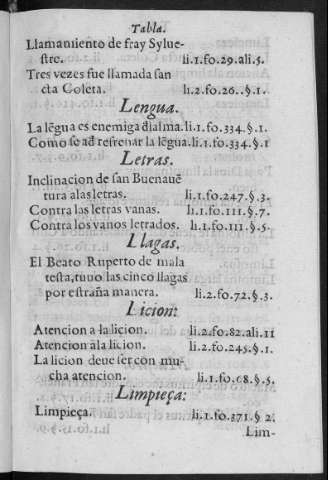 Tabla.
Llamamiento de fray Sylue-
stre. li.1.fo.29.ali.5.
Tres vezes fue llamada san
cta Coleta. li.2.fo.26..§.1.
Lengua.
La lẽgua es enemiga d̃lalma.li.1.fo.334.§.1.
Como se ad refrenar la lẽgua.li.1.fo.334.§.1
Letras.
Inclinacion de san Buenauẽ
tura alas letras. li.1.fo.247.§.3.
Contra las letras vanas. li.1.fo.111.§.7.
Contra los vanos letrados. li.1.fo.111.§.5.
Llagas.
El Beato Ruperto de mala
testa, tuuo las cinco llagas
por estraña manera. li.2.fo.72.§.3.
Licion:
Atencion a la licion. li.2.fo.82.ali.11
Atencion àla licion. li.2.fo.245.§.1.
La licion deue ser con mu-
cha atencion. li.1.fo.68.§.5.
Limpieça:
Limpieça. li.1.fo.371.§ 2.
Lim-